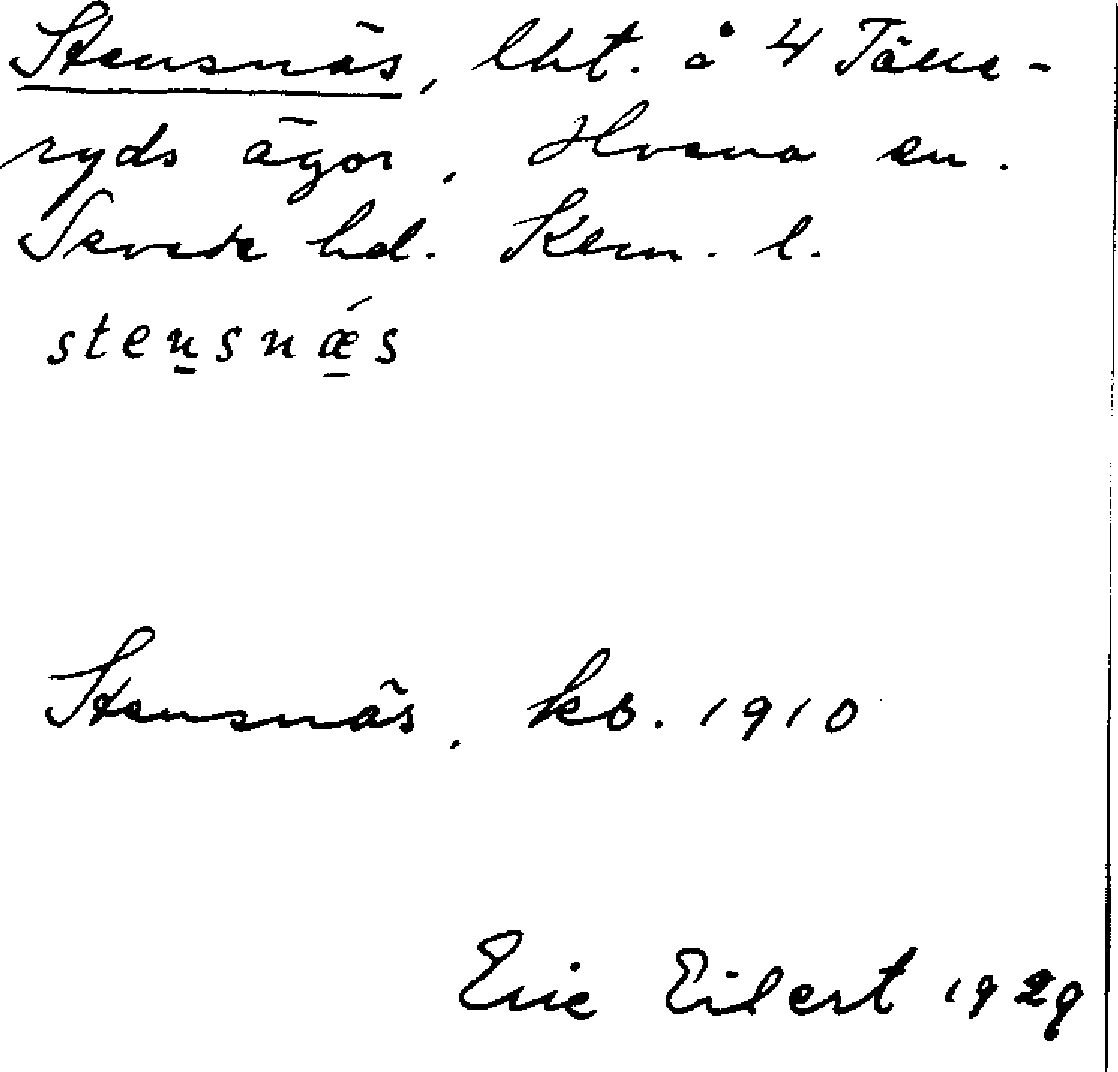 Stensnäs, lht. å 4 Tälle-
ryds ägor, Hvena sn.
Sevede hd. Kalm. l.
stensnǽs
Stensnäs, kb. 1910
Eric Eilert 1929